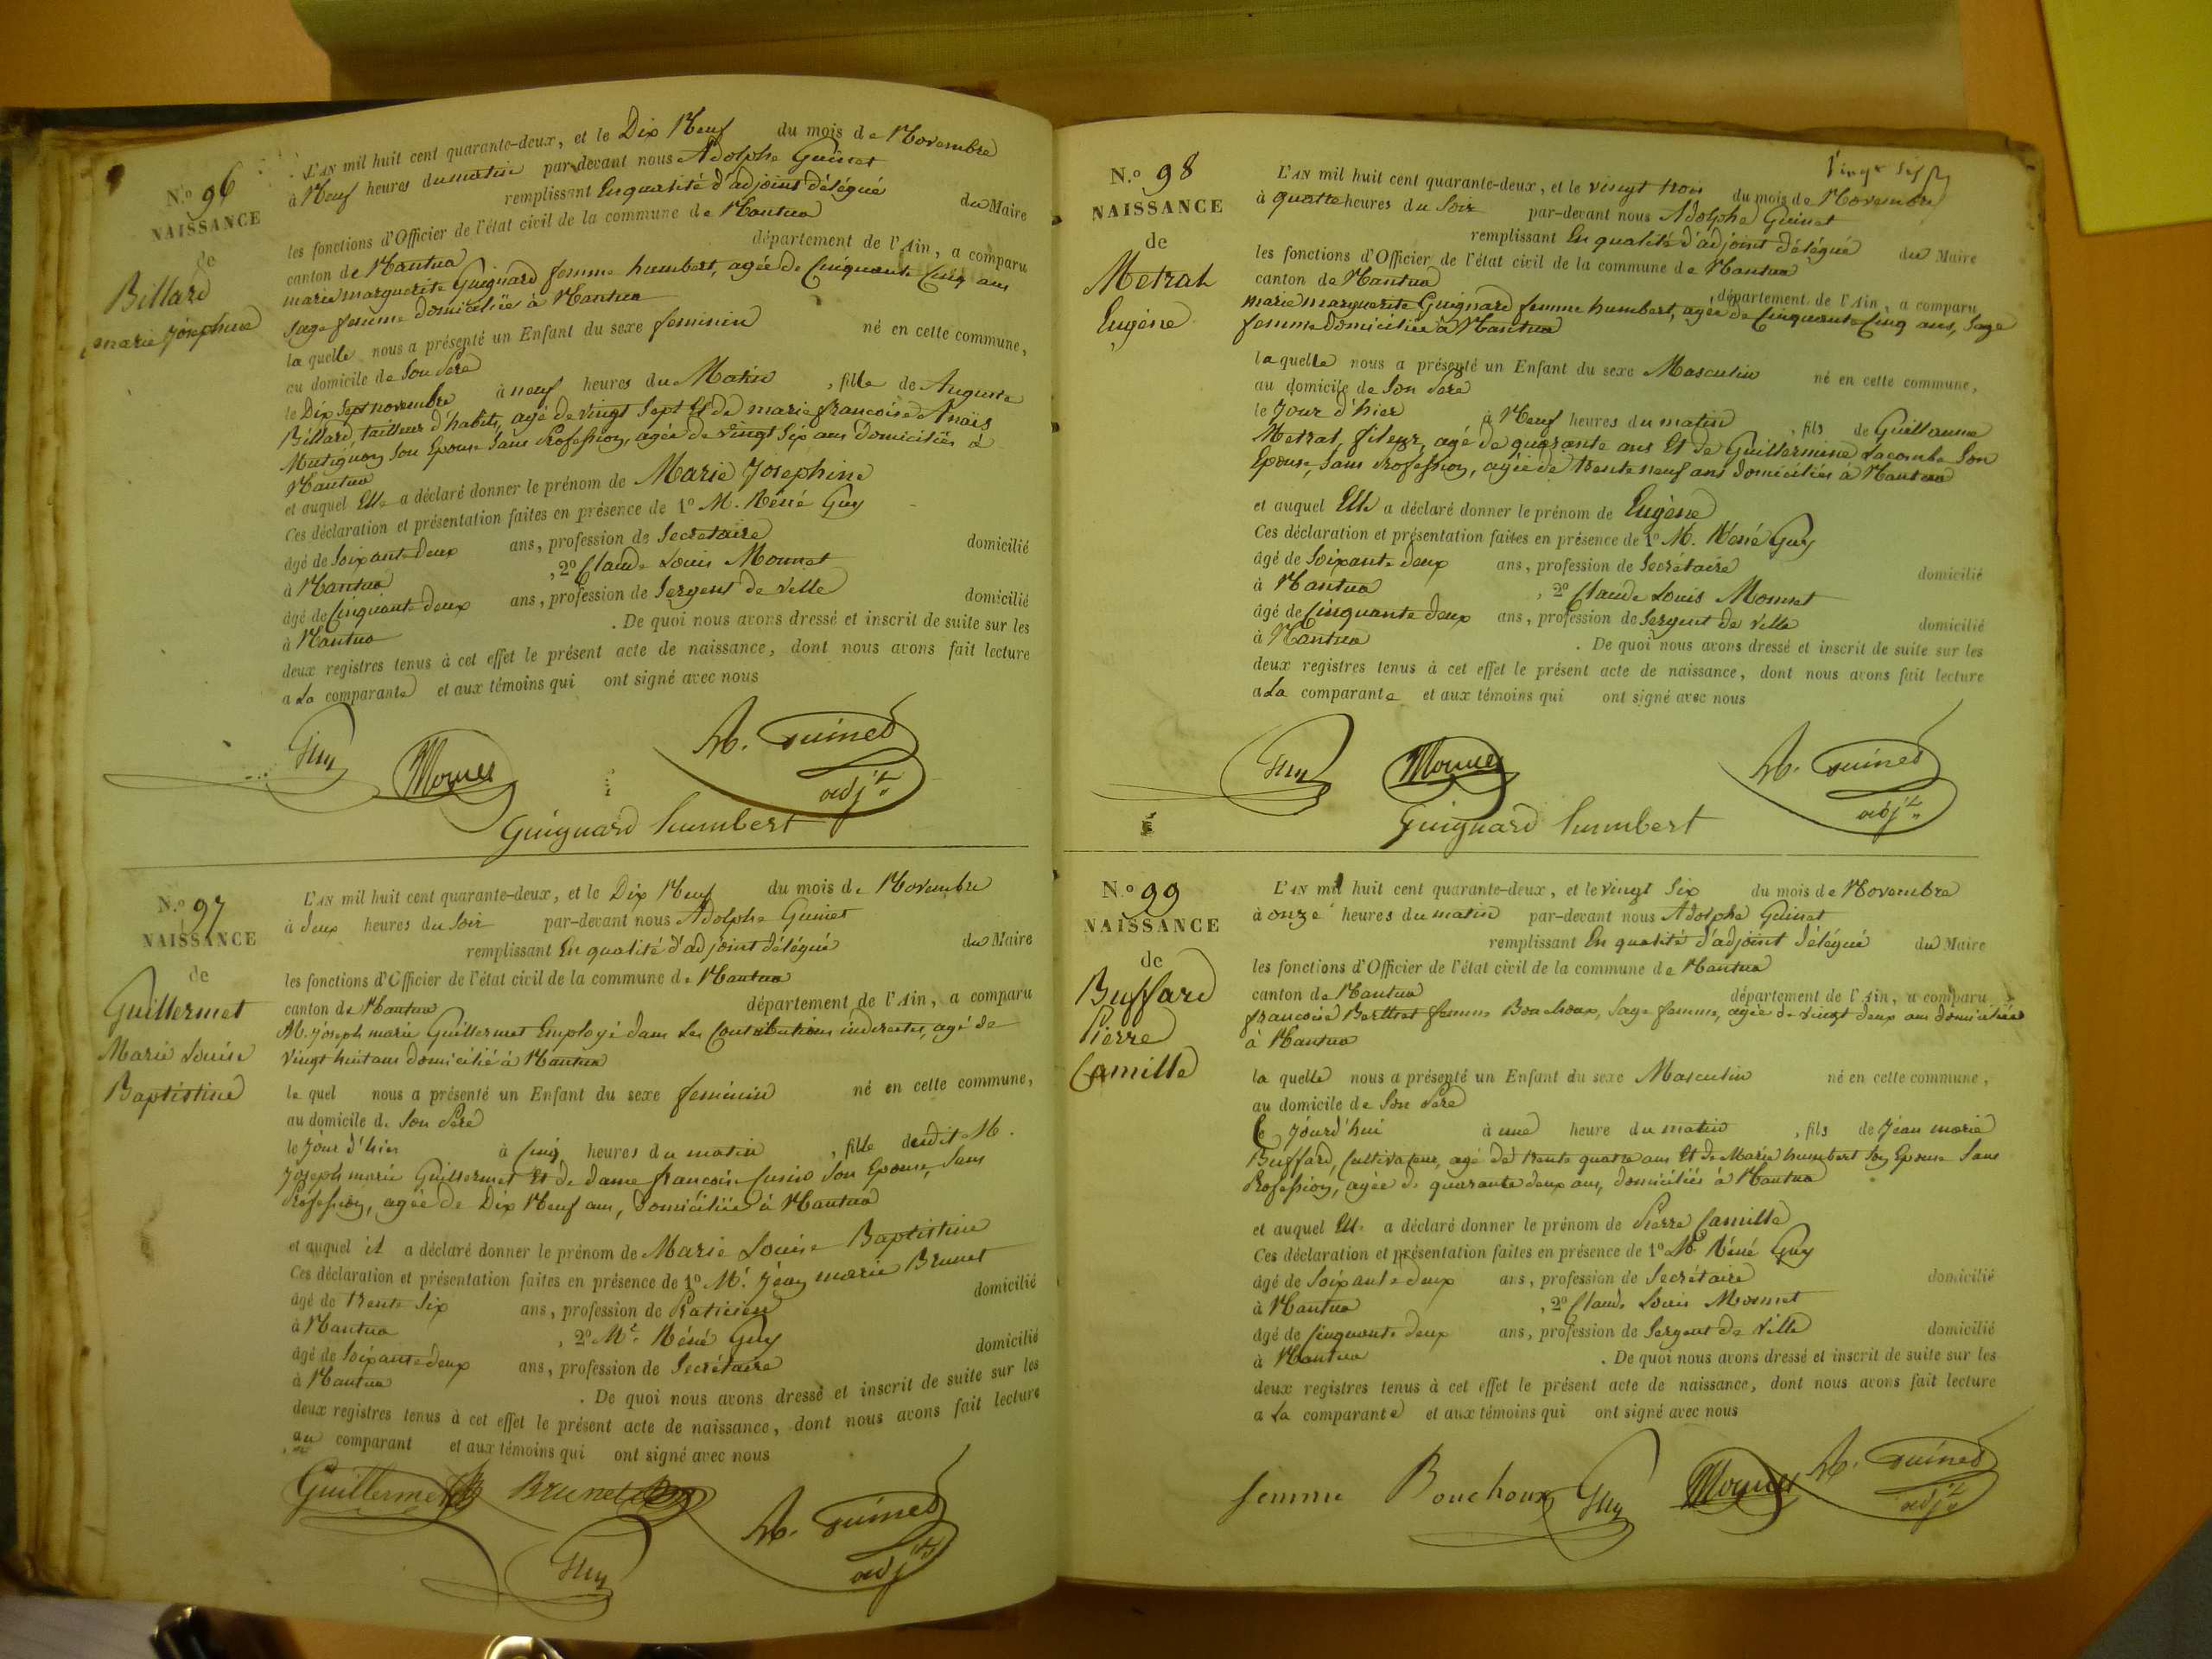 N.o 96
NAISSANCE
de
Billard
marie Joséphine
L'AN mil huit cent quarante-deux, et le Dix Neuf du mois de Novembre
à Neuf heures du matin par-devant nous Adolphe Guinet
remplissant En qualité d'adjoint délégué du Maire
les fonctions d'Officier de l'état civil de la commune de Nantua
canton de Nantua département de l'Ain, a comparu
marie marguerite Guignard femme humbert, agée de Cinquante Cinq ans
Sage femme domiciliée à Nantua
la quelle nous a présenté un Enfant du sexe feminin né en cette commune,
au domicile de Son Père
le Dix Sept novembre à neuf heures du Matin, fille de Auguste
Billard, tailleur d'habits, agé de vingt Sept Et de marie françoise Anaïs
Mutignon Son Epouse Sans Profession, agée de vingt Six ans domiciliés à
Nantua
et auquel Elle a déclaré donner le prénom de Marie Josephine
Ces déclaration et présentation faites en présence de 1o M. Réné Guy
âgé de Soixante deux ans, profession de Secretaire domicilié
à Nantua, 2o Claude Louis Monnet
âgé de Cinquante deux ans, profession de Sergent de ville domicilié
à Nantua. De quoi nous avons dressé et inscrit de suite sur les
deux registres tenus à cet effet le présent acte de naissance, dont nous avons fait lecture
a La comparante et aux témoins qui ont signé avec nous
Guy Monnet A. Guinet
adjt
Guignard humbert
N.o 97
NAISSANCE
de
Guillermet
Marie Louise
Baptistine
L'AN mil huit cent quarante-deux, et le Dix Neuf du mois de Novembre
à deux heures du Soir par-devant nous Adolphe Guinet
remplissant En qualité d'adjoint délégué du Maire
les fonctions d'Officier de l'état civil de la commune de Nantua
canton de Nantua département de l'Ain, a comparu
M. joseph marie Guillermet Employé dans Les Contributions indirectes, agé de
vingt huit ans domicilié à Nantua
le quel nous a présenté un Enfant du sexe feminin né en cette commune,
au domicile de Son Père
le Jour d'hier à Cinq heures du matin, fille dudit M.
Joseph marie Guillermet Et de dame françoise Son Epouse, Sans
Profession, agée de Dix Neuf ans, Domiciliés à Nantua
et auquel il a déclaré donner le prénom de Marie Louise Baptistine
Ces déclaration et présentation faites en présence de 1o Mr. Jean marie Brunet
âgé de trente Six ans, profession de Praticien domicilié
à Nantua, 2o Mr. Réné Guy
âgé de Soixante deux ans, profession de Secrétaire domicilié
à Nantua. De quoi nous avons dressé et inscrit de suite sur les
deux registres tenus à cet effet le présent acte de naissance, dont nous avons fait lecture
au comparant et aux témoins qui ont signé avec nous
Guillermet Brunet A. Guinet
Guy adjt
Vingt Sept
N.o 98
NAISSANCE
de
Metral
Eugène
L'AN mil huit cent quarante-deux, et le vingt trois du mois de Novembre
à quatre heures du Soir par-devant nous Adolphe Guinet
remplissant En qualité d'adjoint délégué du Maire
les fonctions d'Officier de l'état civil de la commune de Nantua
canton de Nantua département de l'Ain, a comparu
marie marguerite Guignard femme humbert, agée de Cinquante Cinq ans, Sage
femme domiciliée à Nantua
la quelle nous a présenté un Enfant du sexe Masculin né en cette commune,
au domicile de Son Père
le Jour d'hier à Neuf heures du matin, fils de Guillaume
Metral, fileur, agé de quarante ans Et de Guillermine Lacombe Son
Epouse, Sans Profession, agée de trente neuf ans domiciliés à Nantua
et auquel Elle a déclaré donner le prénom de Eugène
Ces déclaration et présentation faites en présence de 1o M. Réné Guy
âgé de Soixante deux ans, profession de Secrétaire domicilié
à Nantua, 2o Claude Louis Monnet
âgé de Cinquante deux ans, profession de Sergent de ville domicilié
à Nantua. De quoi nous avons dressé et inscrit de suite sur les
deux registres tenus à cet effet le présent acte de naissance, dont nous avons fait lecture
a La comparante et aux témoins qui ont signé avec nous
Guy Monnet A. Guinet
adjt
Guignard humbert
N.o 99
NAISSANCE
de
Buffard
Pierre
Camille
L'AN mil huit cent quarante-deux, et le vingt Six du mois de Novembre
à onze heures du matin par-devant nous Adolphe Guinet
remplissant En qualité d'adjoint délégué du Maire
les fonctions d'Officier de l'état civil de la commune de Nantua
canton de Nantua département de l'Ain, a comparu
françoise Berthet femme Bouchoux, Sage femme, agée de vingt deux ans domiciliée
à Nantua
la quelle nous a présenté un Enfant du sexe Masculin né en cette commune,
au domicile de Son Père
Ce Jourd'hui à une heure du matin, fils de Jean marie
Buffard, Cultivateur, agé de trente quatre ans Et de Marie humbert Son Epouse Sans
Profession, agée de quarante deux ans, domiciliés à Nantua
et auquel Elle a déclaré donner le prénom de Pierre Camille
Ces déclaration et présentation faites en présence de 1o Mr Réné Guy
âgé de Soixante deux ans, profession de Secrétaire domicilié
à Nantua, 2o Claude Louis Monnet
âgé de Cinquante deux ans, profession de Sergent de Ville domicilié
à Nantua. De quoi nous avons dressé et inscrit de suite sur les
deux registres tenus à cet effet le présent acte de naissance, dont nous avons fait lecture
a La comparante et aux témoins qui ont signé avec nous
femme Bouchoux Guy Monnet A. Guinet
adjt